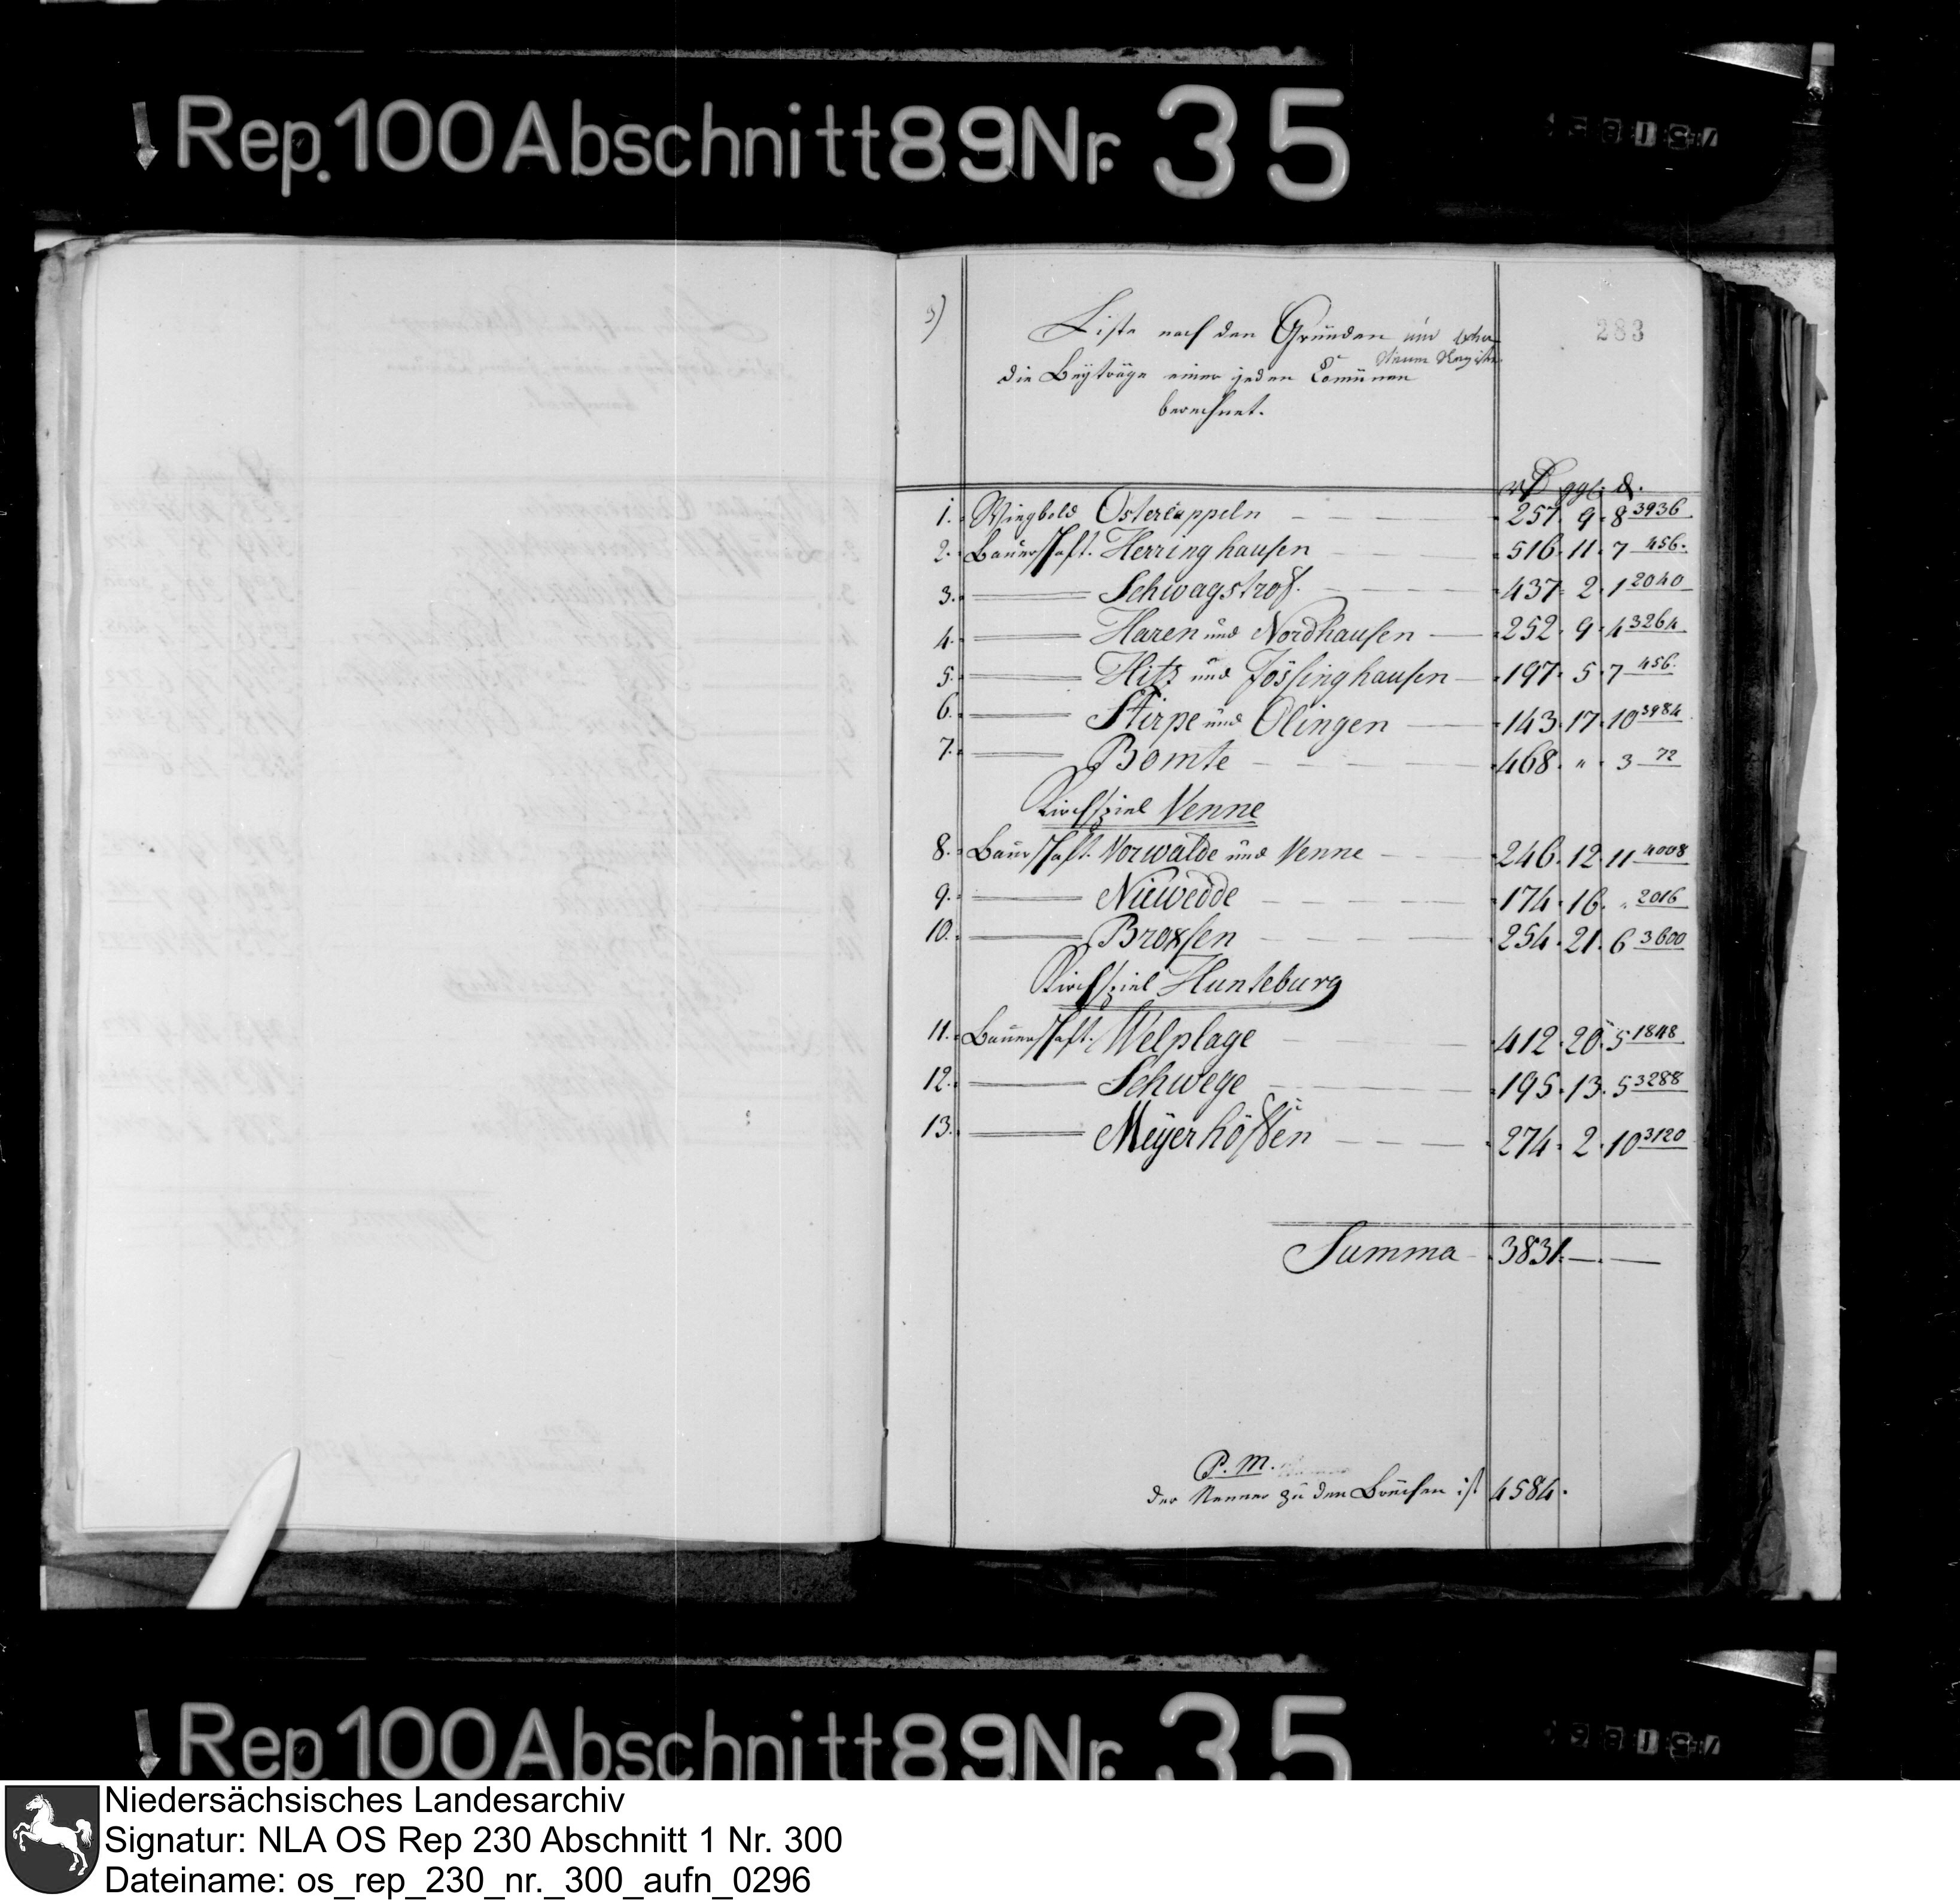 Rep. 100 Abschnitt 89 Nr. 35
3)
283
Liste nach den Gründen
die Beÿträge einer jeden Comünen
berechnet.
rt ggl. d.
1. Wiegbold Ostercappeln 257. 9. 8 3936
2. Bauerschaft. Herringhausen 516. 11. 7 456.
3. Schwagstrof. 437. 2. 1 2040
4. Haren und Nordhausen 252. 9. 4 3264
5. Hitz und Jössinghausen 197. 5. 7 456.
6. Stirpe und Olingen 143. 17. 10 3984
7. Bomte 468. " 3 72
Kirchspiel Venne
8. Bauerschaft. Vorwalde und Venne 246. 12. 11 4008
9. Niewedde 174. 16. " 2016
10. Broxsen 254. 21. 6 3600
Kirchspiel Hunteburg
11. Bauerschaft. Welplage 412. 20. 5 1848
12. Schwege 195. 13. 5 3288
13. Meÿerhöffen 274. 2. 10 3120
Summa 3831. — . —
P. M.
der Nenner zu den Brüchen ist 4584.
Rep. 100 Abschnitt 89 Nr. 35
Niedersächsisches Landesarchiv
Signatur: NLA OS Rep 230 Abschnitt 1 Nr. 300
Dateiname: os_rep_230_nr._300_aufn_0296